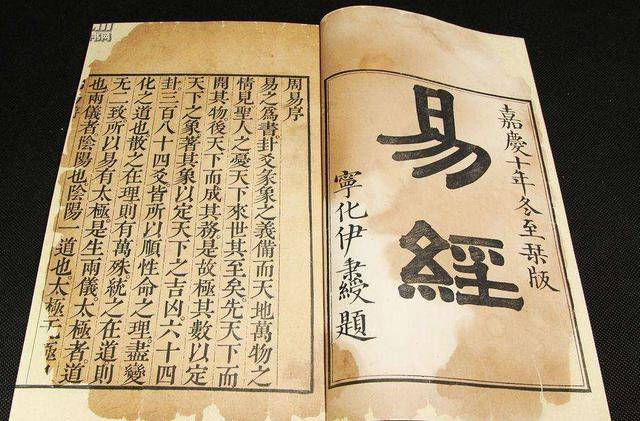 嘉慶十年冬至栞版
易經
寧化伊秉綬題
周易序
易之為書卦爻彖象之義備而天地萬物之
情見聖人之憂天下來世其至矣先天下而
開其物後天下而成其務是故極其數以定
天下之象著其象以定天下之吉凶六十四
卦三百八十四爻皆所以順性命之理盡變
化之道也散之在理則有萬殊統之在道則
无二致所以易有太極是生兩儀太極者道
也兩儀者陰陽也陰陽一道也太極无極
书网